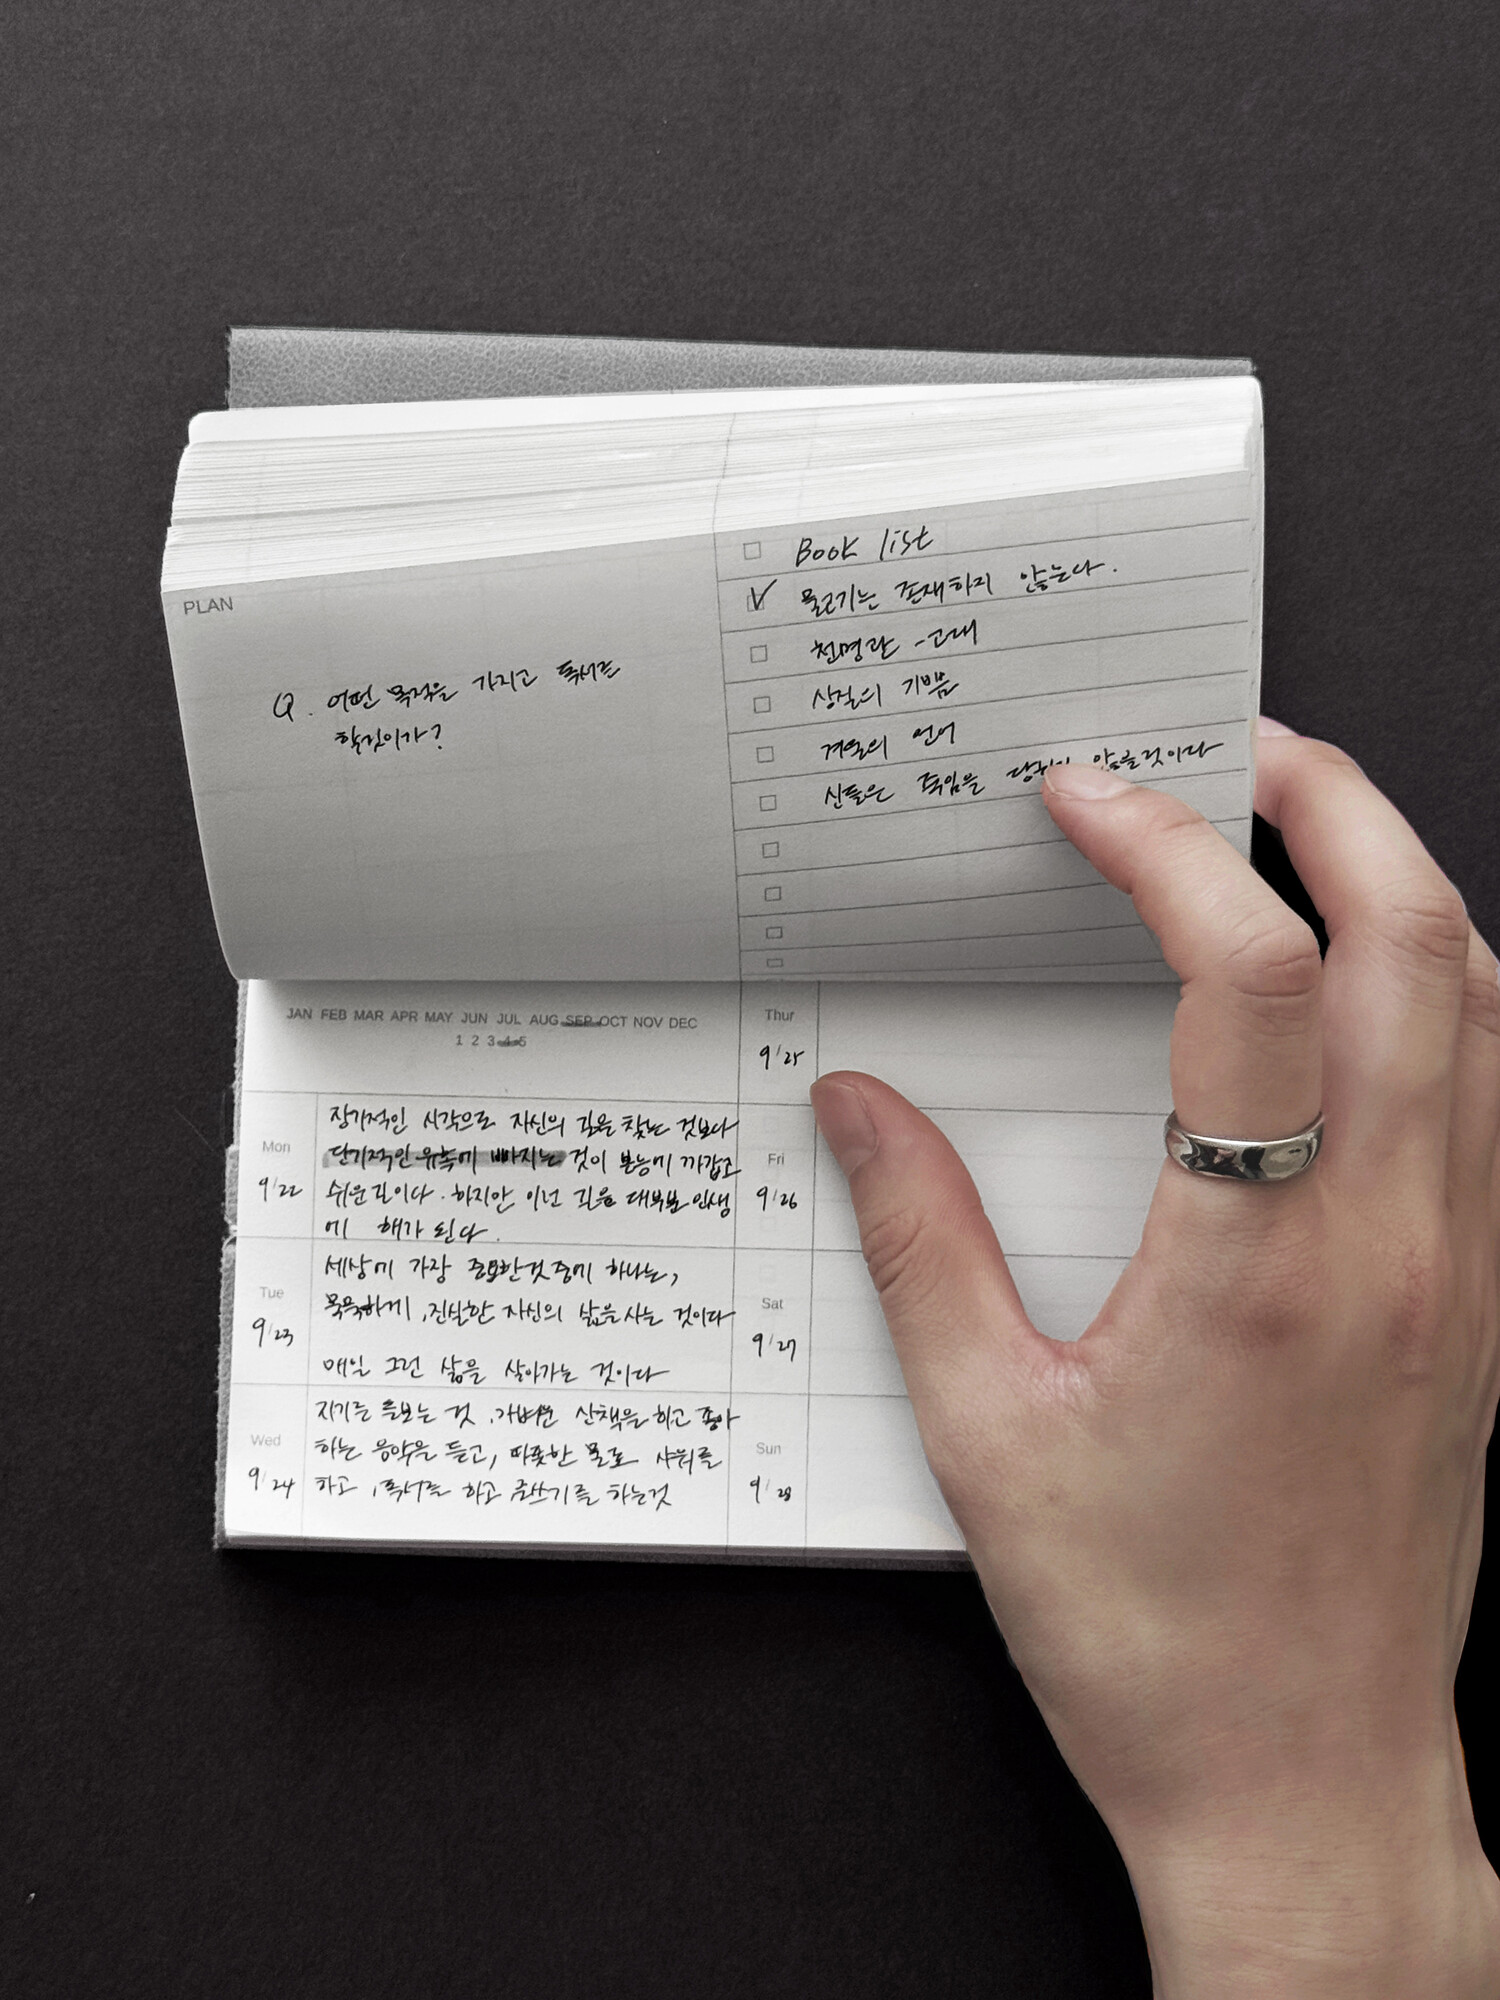 PLAN
Q. 어떤 목적을 가지고 독서를
할것이가?
Book list
물고기는 존재하지 않는다.
천명관 - 고래
상실의 기쁨
겨울의 언어
신들은 죽임을 당하지 않을것이다
JAN FEB MAR APR MAY JUN JUL AUG SEP OCT NOV DEC
1 2 3 4 5
Mon
9/22
장기적인 시각으로 자신의 길을 찾는 것보다
단기적인 유혹에 빠지는 것이 본능에 가깝고
쉬운 길이다. 하지만 이런 길은 대부분 인생
에 해가 된다.
Tue
9/23
세상에 가장 중요한것 중에 하나는,
묵묵하게, 진실한 자신의 삶을 사는 것이다
매일 그런 삶을 살아가는 것이다
Wed
9/24
자기를 돌보는 것, 가벼운 산책을 하고 좋아
하는 음악을 듣고, 따뜻한 물로 샤워를
하고, 독서를 하고 글쓰기를 하는것
Thur
9/25
Fri
9/26
Sat
9/27
Sun
9/28